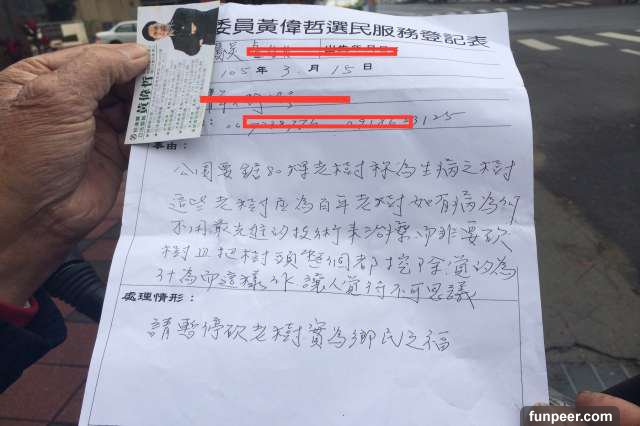 委員黃偉哲選民服務登記表
105年 3.月 15日
3125
事由：
公園要鋸80棵老樹称為生病之樹
這些老樹应為百年老樹如有病為何
不用最先進的技術來治療而非要砍
樹且把樹頭整個都挖除
什為而這樣作讓人覺得不可思議
處理情形：
請暫停砍老樹實為鄉民之福
黃偉哲
funpeer.com